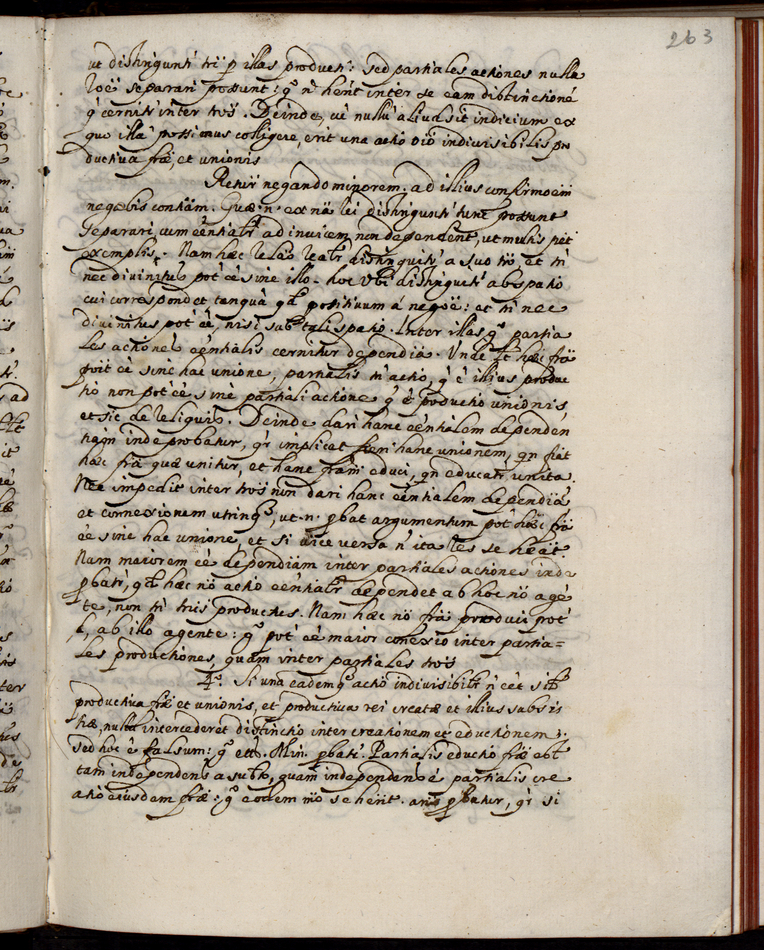 263
ut distingunt' trī p illas product': sed partiales actiones nulla
roē separari possunt: g° n̄ hēnt inter se eam distinctionē
q̄ cernit' inter trōs. Deinde, cū nullū aliud sit indicium ex
quo illā possimus colligere, erit una actio oīo indivisibilis pro
ductiva fræ, et unionis
negando minorem. ad illius confirmoem
negabis conām. Quæ .n. ex nā rei distingunt' tunc possunt
separari cum eēntialr ad invicem non dependent, ut multis pēt
exemplis. Nam hæc relāo realr distinguit' a suo trō et tn̄
nec divinitus pot' eē sine illo. hoc ubi distinguit' ab spatio
cui correspondet tanquā qd positivum á negoē: et tn̄ nec
divinitus pot' eē, nisi sub tali spatio. Inter illas g° partia
les actiones eēntialis cernitur dependīa. Unde licet hæc frā
possit eē sine hac unione, partialis tn̄ actio, q̄ ē illius produc
tio non pot' eē sine partiali actione q̄ ē productio unionis
et sic de reliquis. Deinde dari hanc eēntialem dependen
tiam inde probatur, qr implicat fieri hanc unionem, qn fiat
hæc frā quæ unitur, et hanc fram educi, qn educatur unita.
Nec impedit inter trōs non dari hanc eēntialem dependīā
et connexionem utrinq, ut .n. pbat argumentum pot' hæc frā
eē sine hac unione, et si vice versa n̄ ita res se heat.
Nam maiorem eē dependīam inter partiales actiones inde
pbatr, qd hæc nō actio eēntialr dependet ab hoc nō agē
te, non tn̄ trīs productus. Nam hæc nō frā produci pot'
ab illo agente: g° pot' eē maior conexio inter partia=
les productiones, quam inter partiales trōs
4°. Si una eademq actio indivisibilr n̄ eēt sīl
productiva fræ et unionis, et productiva rei creatæ et illius subsis
tiæ, nulla intercederet distinctio inter creationem et eductionem;
sed hoc ē falsum: g° et. Min. pbat'. Partialis eductio fræ eēt
tam independens a subto, quam independens ē partialis cre
atio eiusdem fræ: g° eodem mō se hēnt. ans pbatur, qr si